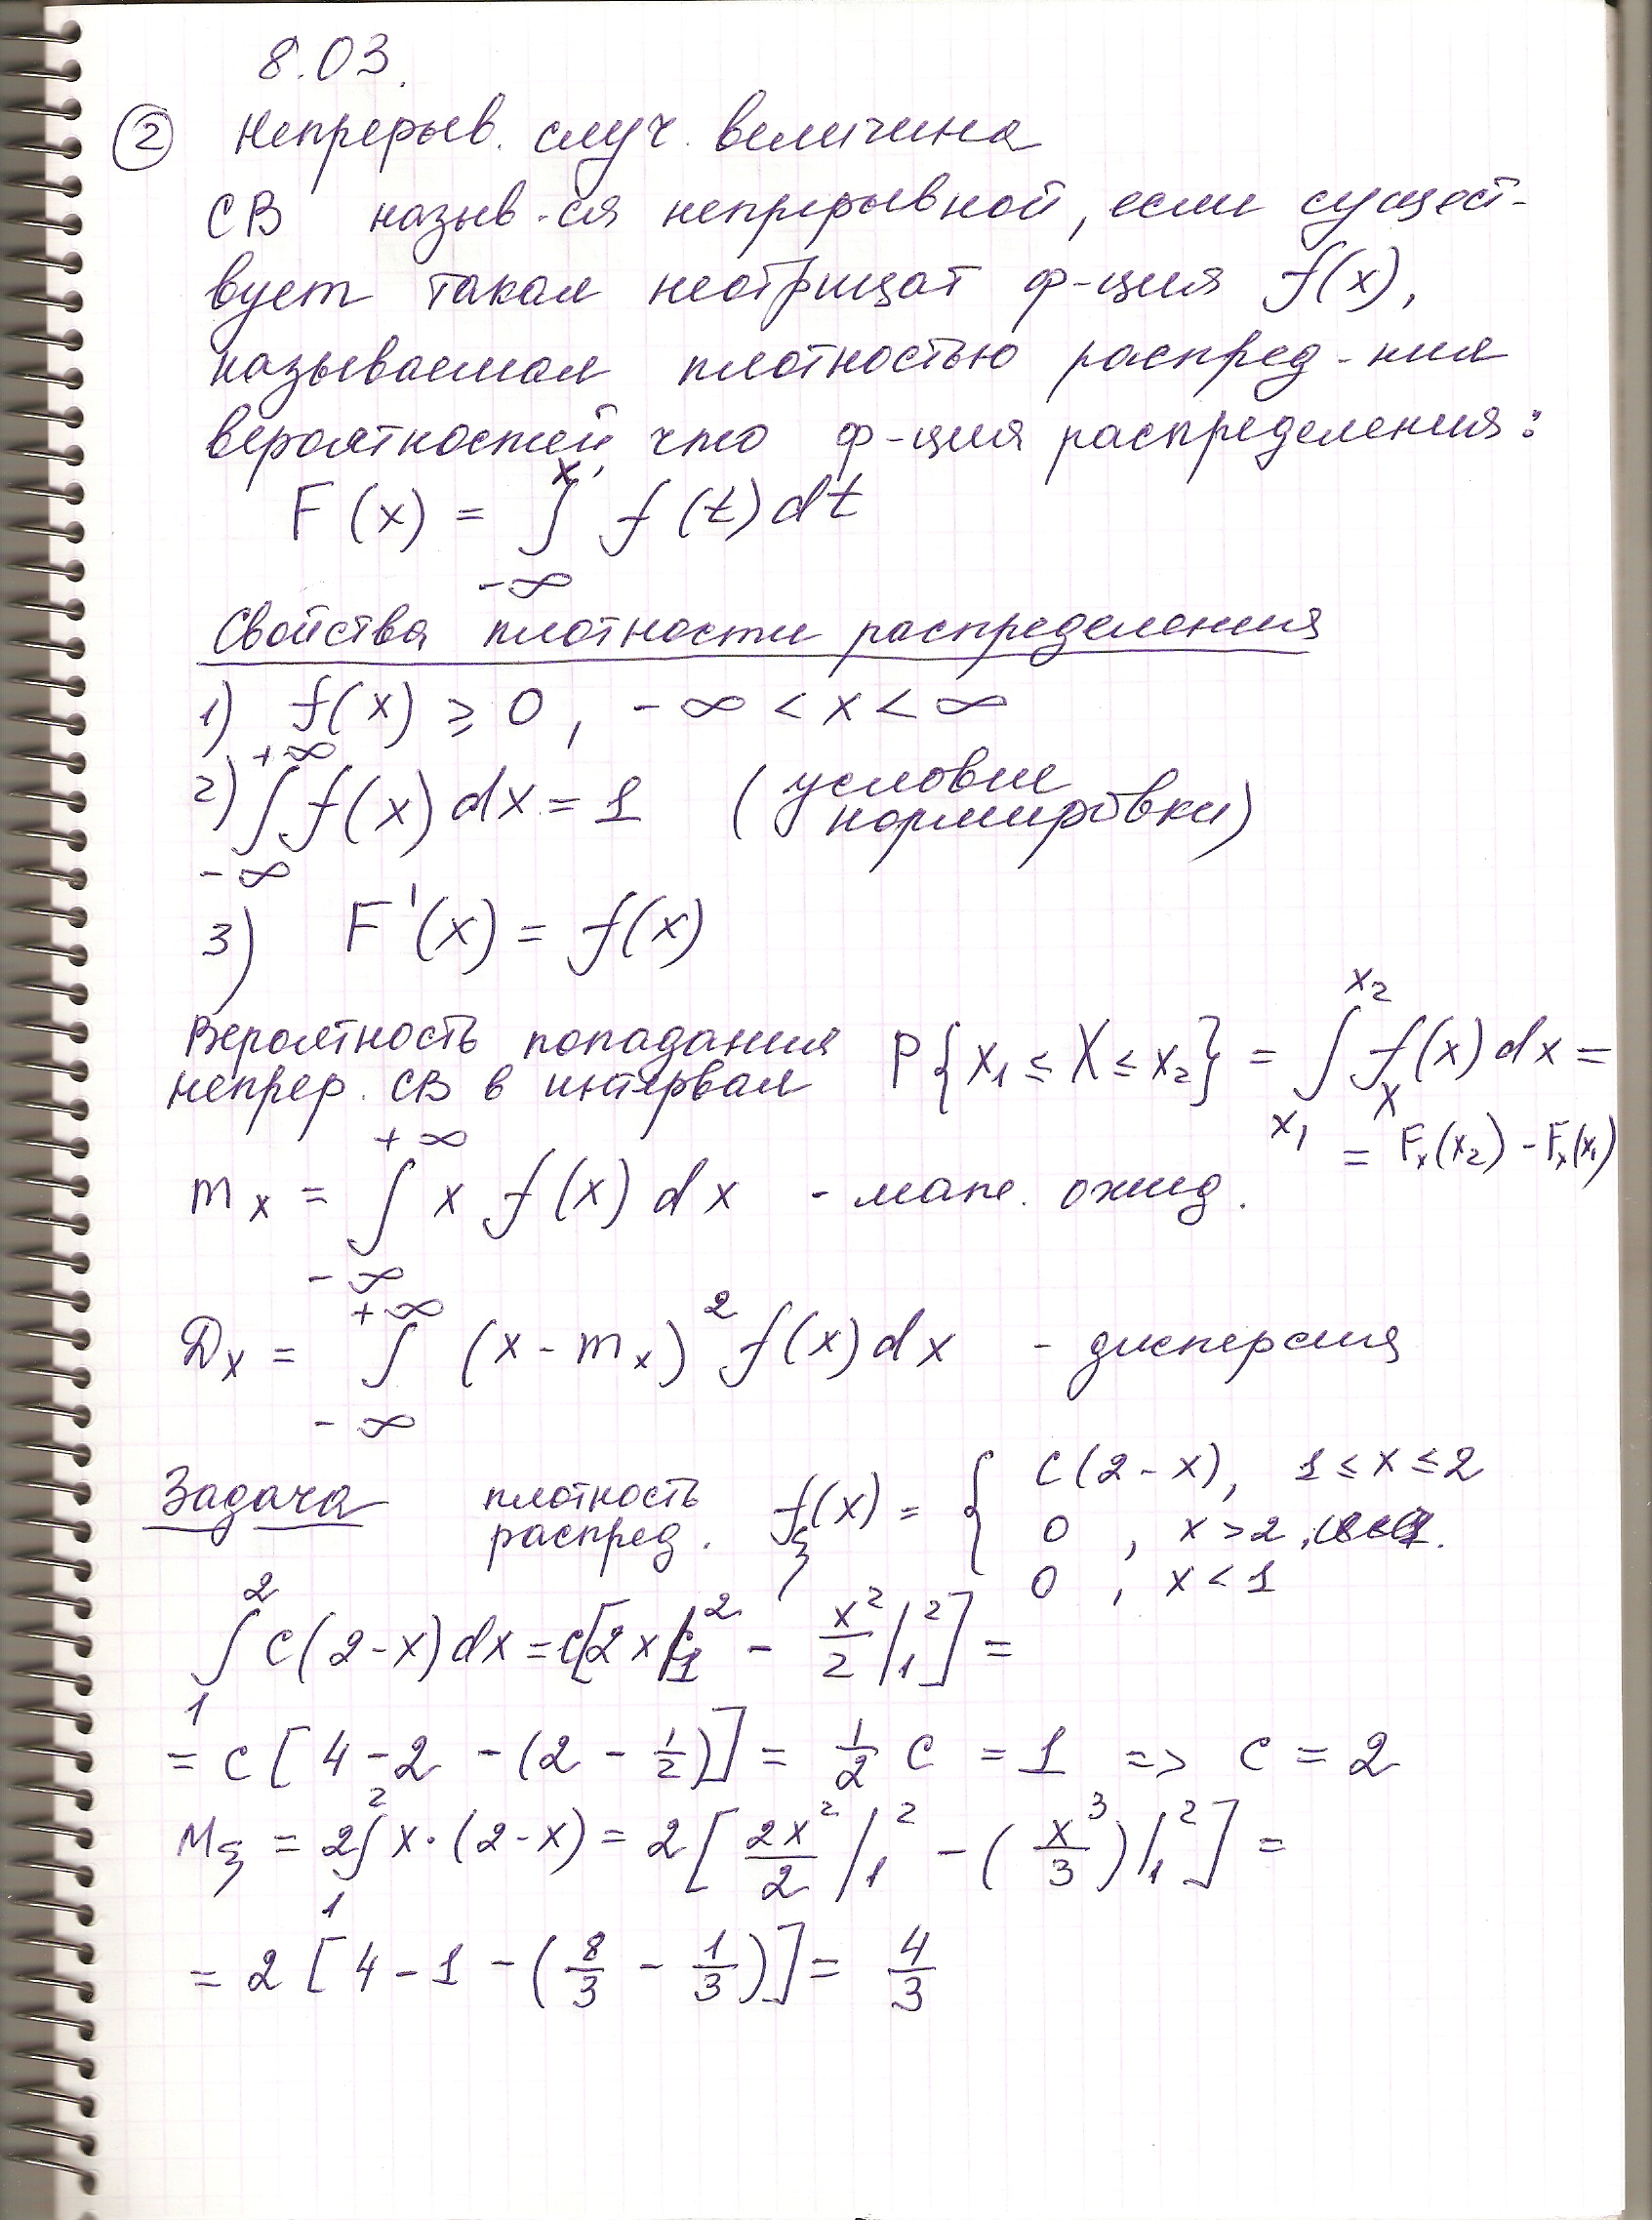 8.03.
② Непрерыв. случ. величина
СВ назыв-ся непрерывной, если сущест-
вует такая неотрицат ф-ция f(x),
называемая плотностью распред-ния
вероятностей, что ф-ция распределения:
F(x) = ∫_{-∞}^{x} f(t)dt
Свойства плотности распределения
1) f(x) ≥ 0, -∞ < x < ∞
2) ∫_{-∞}^{+∞} f(x)dx = 1 (условие нормировки)
3) F'(x) = f(x)
Вероятность попадания
непрер. СВ в интервал P{x₁ ≤ X ≤ x₂} = ∫_{x₁}^{x₂} f_X(x)dx =
= Fₓ(x₂) - Fₓ(x₁)
mₓ = ∫_{-∞}^{+∞} x f(x)dx - мат. ожид.
Dₓ = ∫_{-∞}^{+∞} (x - mₓ)² f(x)dx - дисперсия
Задача плотность распред. f_ξ(x) = { c(2-x), 1 ≤ x ≤ 2
0, x > 2
0, x < 1
∫_1^2 c(2-x)dx = c[2x|_1^2 - x²/2|_1^2] =
= c[4-2 - (2 - 1/2)] = 1/2 c = 1 => c = 2
M_ξ = 2∫_1^2 x·(2-x) = 2[2x²/2|_1^2 - (x³/3)|_1^2] =
= 2[4-1-(8/3 - 1/3)] = 4/3